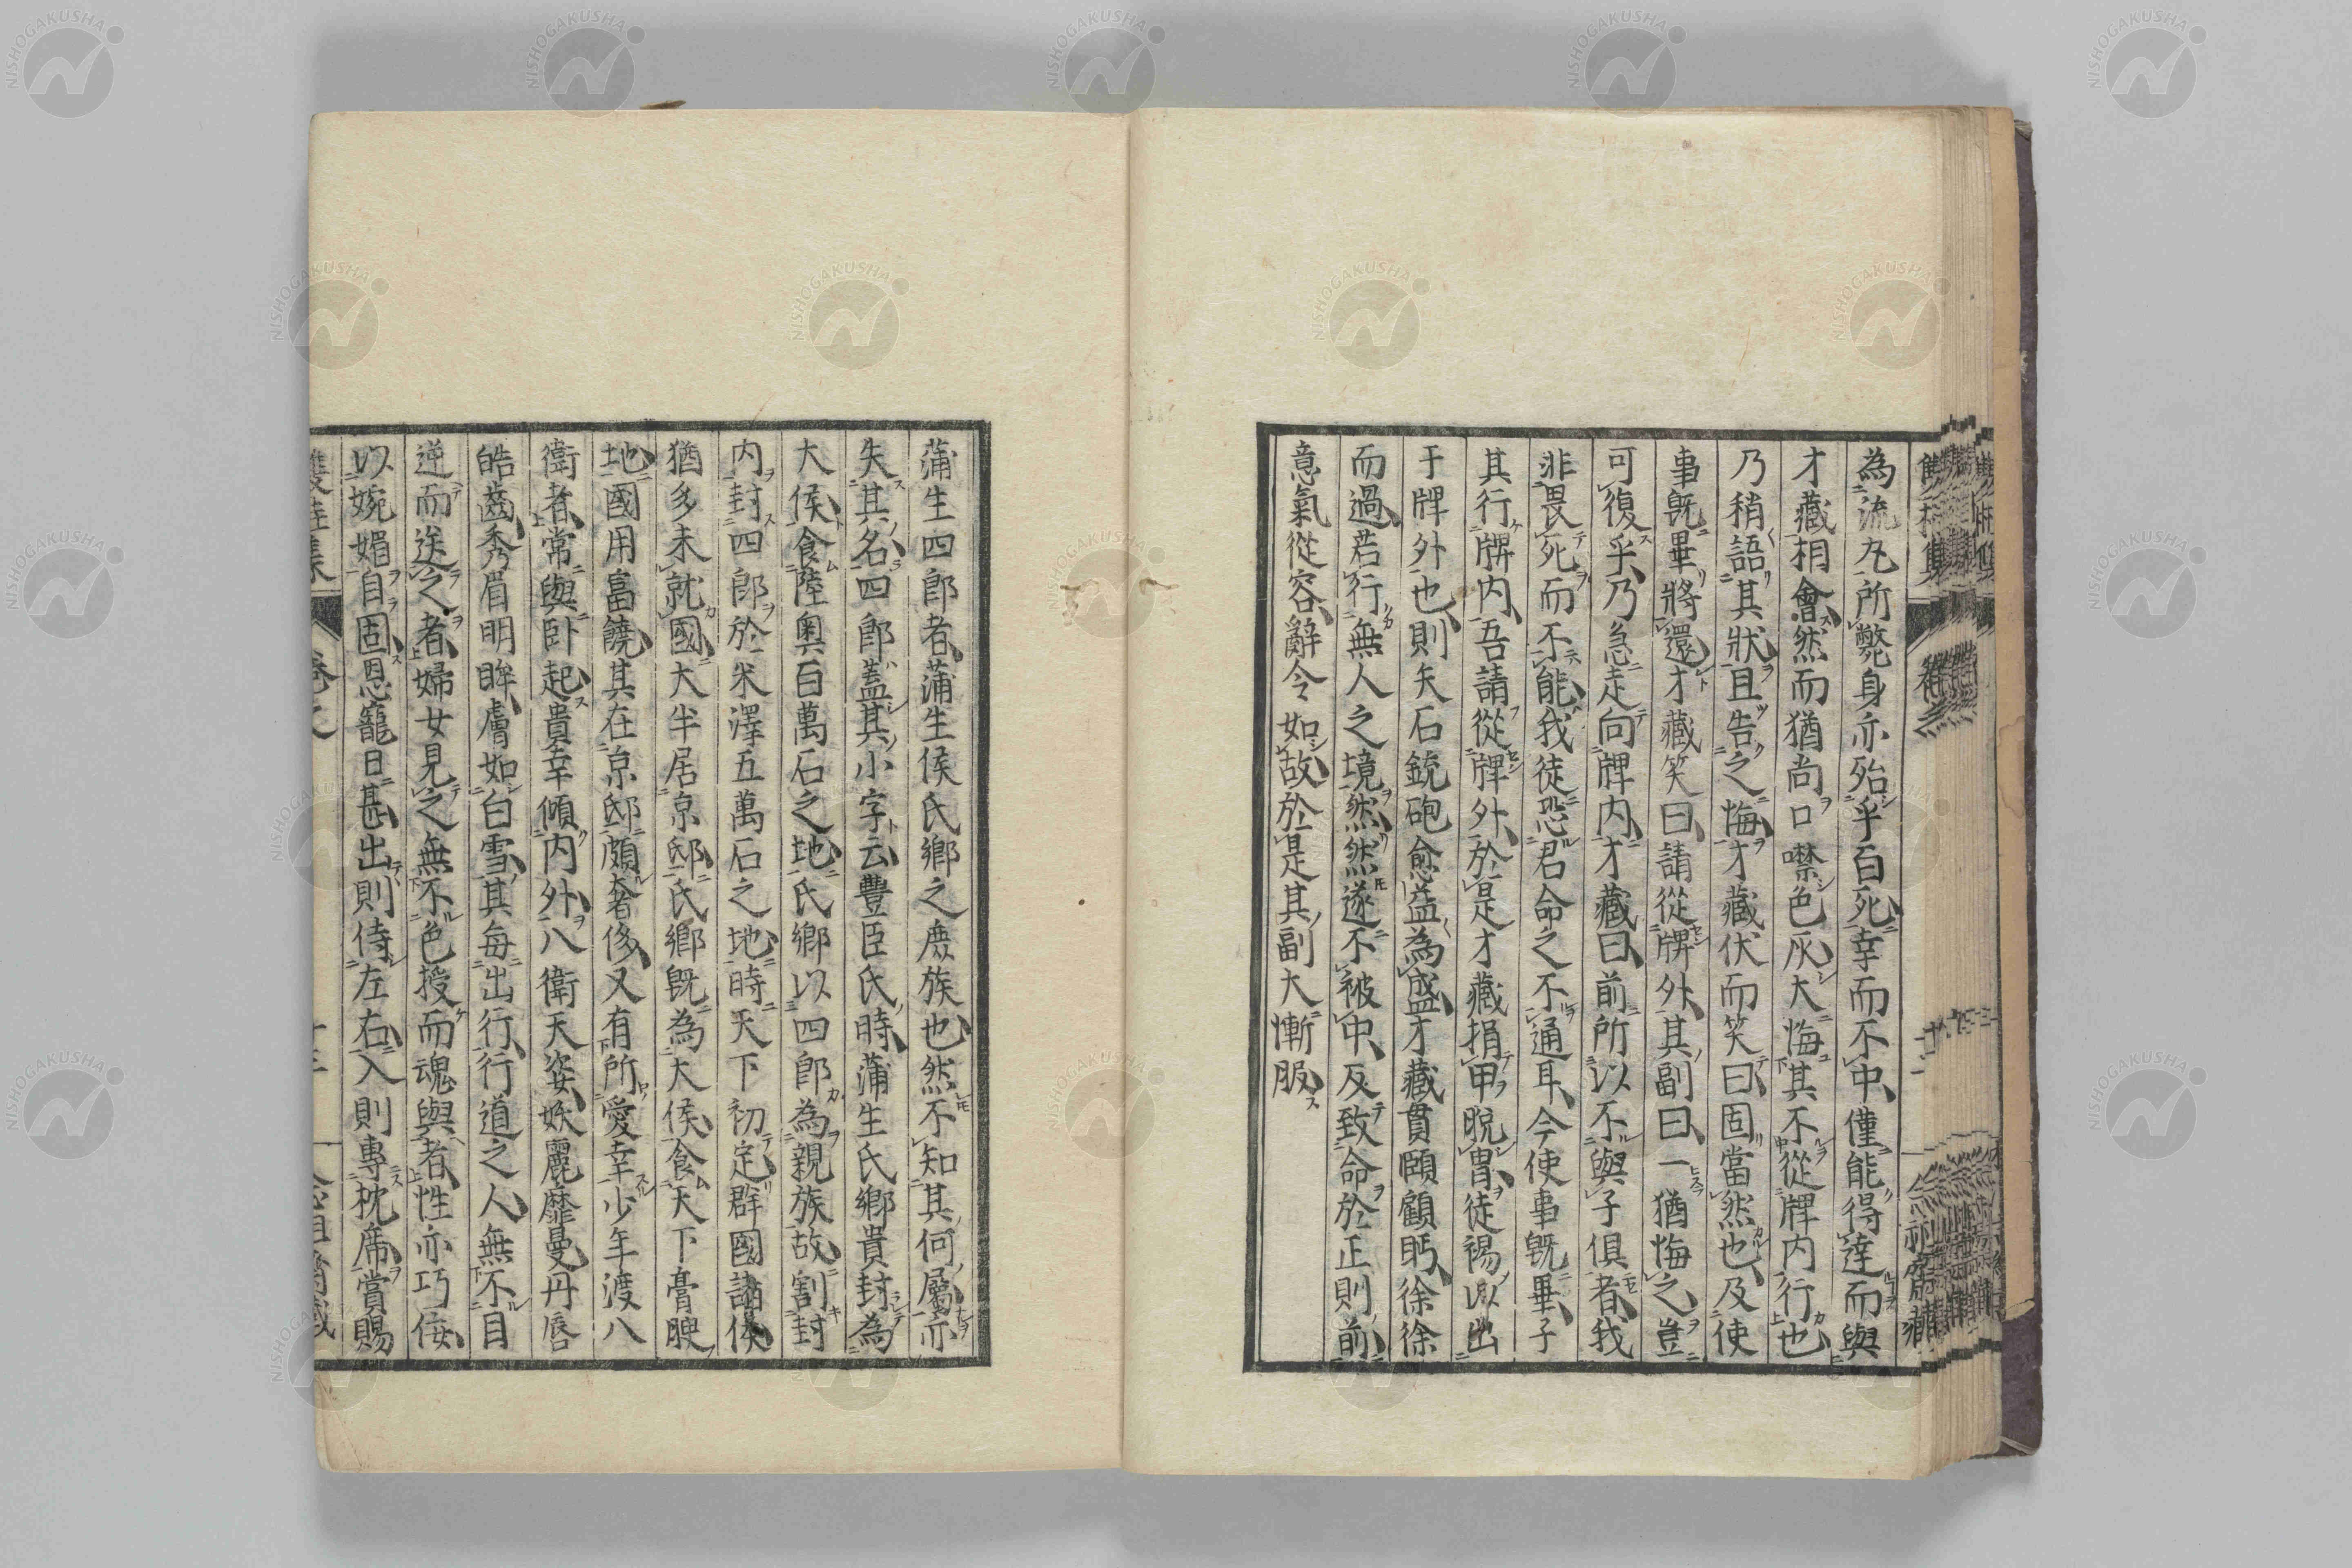 為流丸所斃身亦殆乎百死幸而不中僅能得達而與
才藏相會然而猶尚口噤色灰大悔其不從牌内行也
乃稍語其狀且告之悔才藏伏而笑曰固當然也及使
事既畢將還才藏笑曰請從牌外其副曰一猶悔之豈
可復乎乃急走向牌内才藏曰前所以不與子俱者我
非畏死而不能我徒恐君命之不通耳今使事既畢子
其行牌内吾請從牌外於是才藏捐甲脱冑徒裼以出
于牌外也則矢石銃砲愈益為盛才藏貫頤顧眄徐徐
而過若行無人之境然然遂不被中反致命於正則前
意氣從容辭令如故於是其副大慚服
蒲生四郎者蒲生侯氏鄉之庶族也然不知其何屬亦
失其名四郎蓋其小字云豊臣氏時蒲生氏鄉貴封為
大侯食陸奥百萬石之地氏鄉以四郎為親族故割封
内封四郎於米澤五萬石之地時天下初定群國諸侯
猶多未就國大半居京邸氏鄉既為大侯食天下膏腴
地國用富饒其在京邸頗奢侈又有所愛幸少年渡八
衛者常與卧起貴幸傾内外八衛天姿妖麗靡曼丹唇
皓齒秀眉明眸膚如白雪其每出行行道之人無不目
逆而送之者婦女見之無不色授而魂與者性亦巧佞
以婉媚自固恩寵日甚出則侍左右入則專枕席賞賜